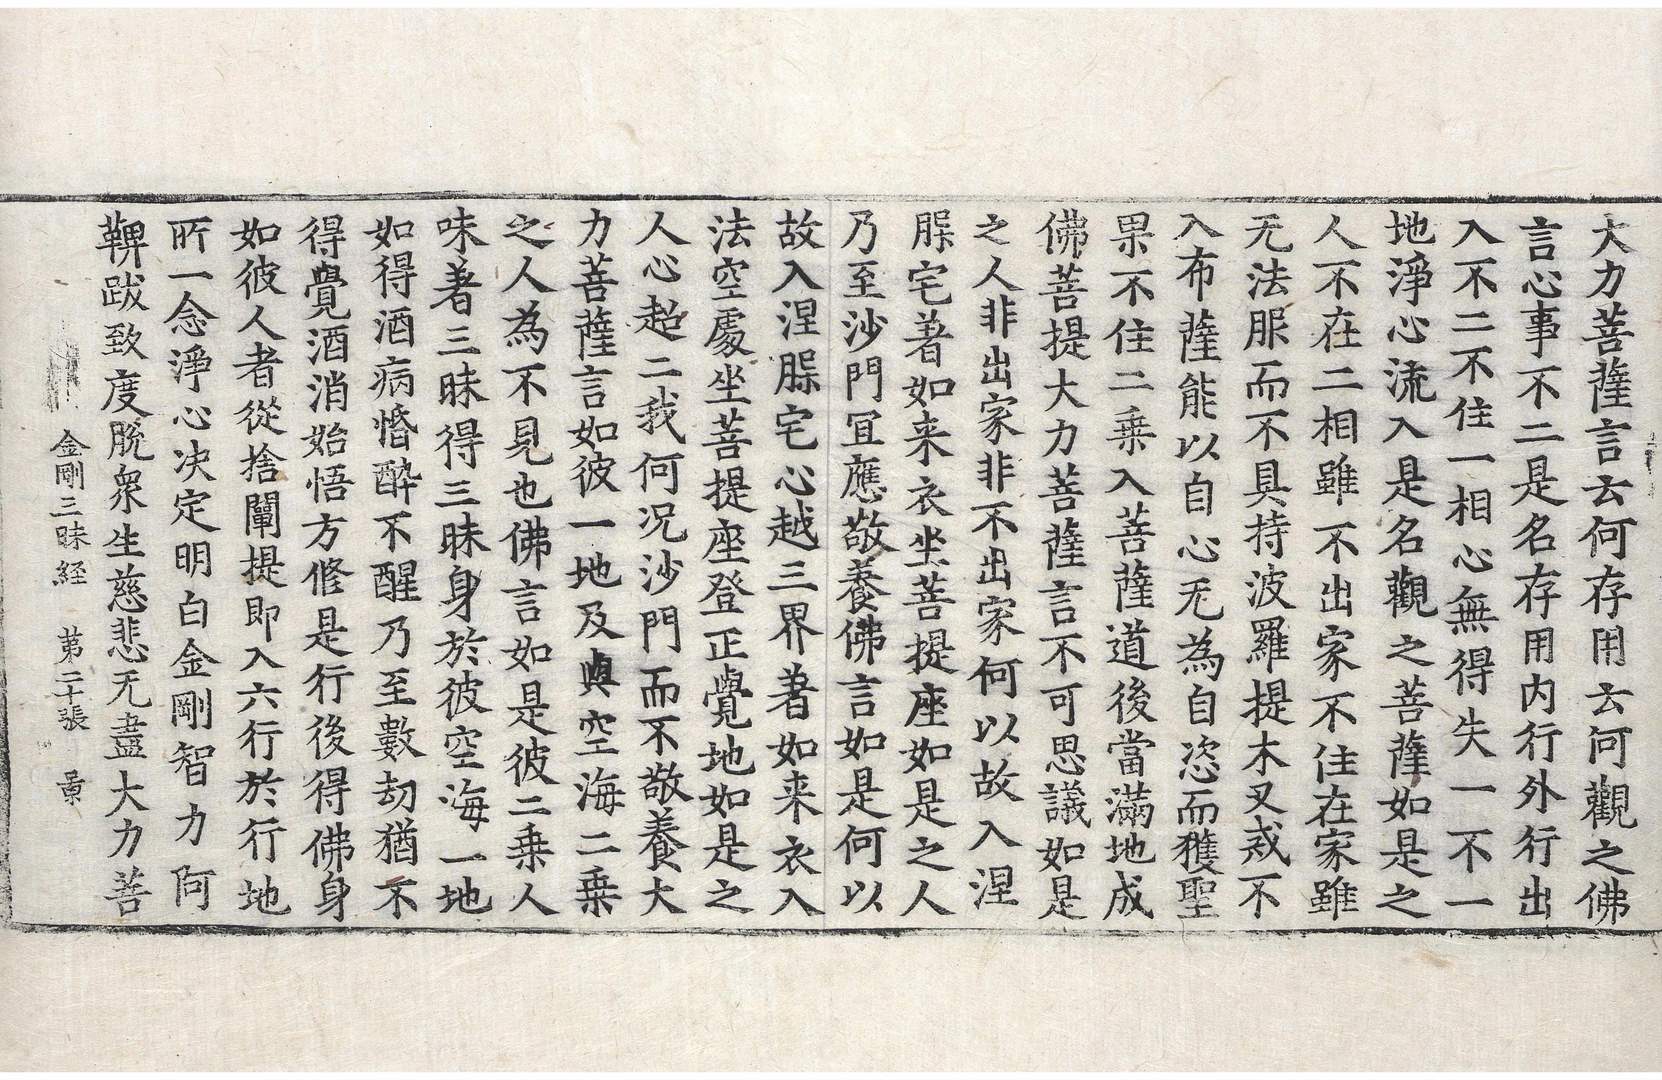 大力菩薩言云何存用云何觀之佛
言心事不二是名存用内行外行出
入不二不住一相心無得失一不一
地淨心流入是名觀之菩薩如是之
人不在二相雖不出家不住在家雖
无法服而不具持波羅提木叉戒不
入布薩能以自心无為自恣而獲聖
果不住二乗入菩薩道後當滿地成
佛菩提大力菩薩言不可思議如是
之人非出家非不出家何以故入涅
槃宅著如来衣坐菩提座如是之人
乃至沙門冝應敬養佛言如是何以
故入涅槃宅心越三界著如来衣入
法空處坐菩提座登正覺地如是之
人心超二我何況沙門而不敬養大
力菩薩言如彼一地及與空海二乗
之人為不見也佛言如是彼二乗人
味著三昧得三昧身於彼空海一地
如得酒病惛醉不醒乃至數劫猶不
得覺酒消始悟方修是行後得佛身
如彼人者從捨闡提即入六行於行地
所一念淨心决定明白金剛智力阿
鞞跋致度脫衆生慈悲无盡大力菩
金剛三昧経 第二十張 景